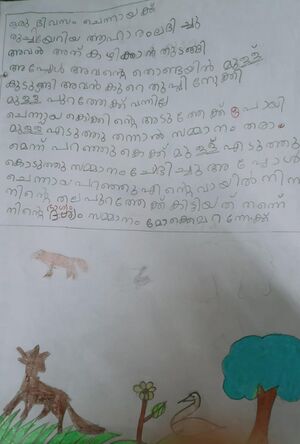 ഒരു ദിവസം ചെന്നായക്ക്
രുചിയേറിയ ആഹാരംലഭി ച്ചു
അവൻ അന് കഴിക്കാൻ തുടങ്ങി
അപ്പോൾ അവന്റെ തൊണ്ടയിൽ മുള്ള്
കുടുങ്ങി അവൻ കുറെ തുപ്പി നോക്കി
മുള്ള് പുറത്തേക്ക് വന്നില്ല
ചെന്നായ കൊക്കിന്റെ അടുത്തേക്ക് പോയി
മുള്ള്എടുത്തു തന്നാൽ സമ്മാനം തരാ
മെന്ന് പറഞ്ഞു കൊക്ക് മുള്ള് എടുത്തു
കൊടുത്തു സമ്മാനം ചോദിച്ചു അപ്പോൾ
ചെന്നായപറഞ്ഞു എന്റെ വായിൽ നിന്ന്
നിന്റെ തല പുറത്തേക്ക് കിട്ടിയത് തന്നെ
നിന്റെ ഭാഗ്യം സമ്മാനം